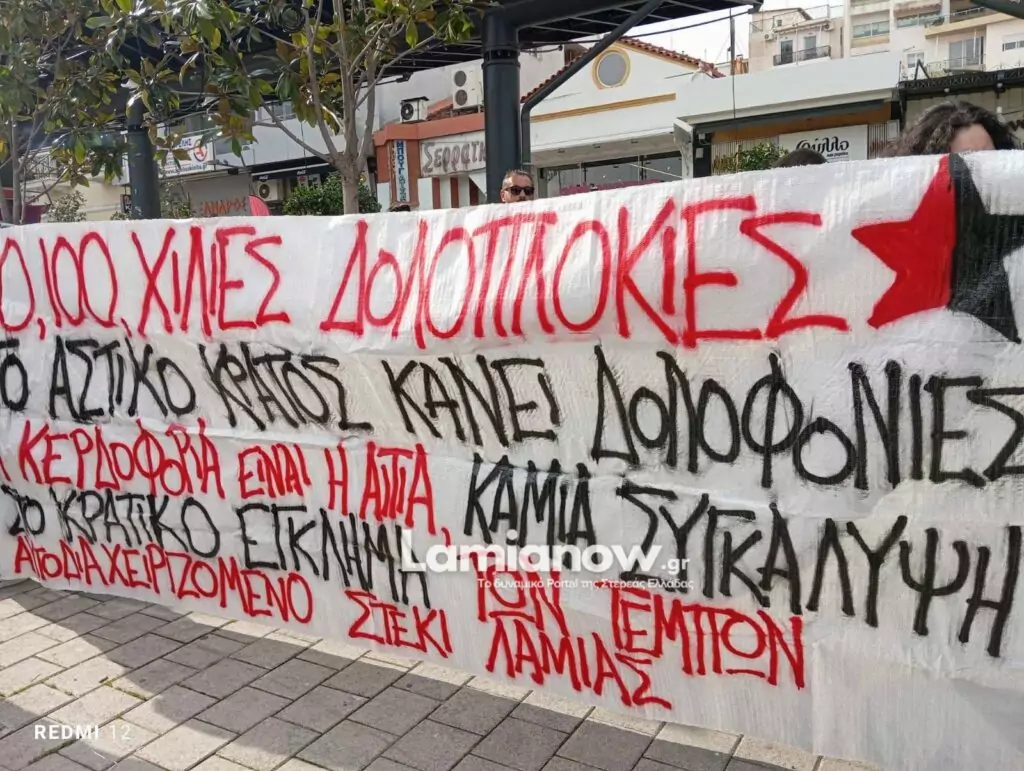 ΣΕΡΡΑΤ
0, 100, ΧΙΛΙΕΣ ΔΟΛΟΠΛΟΚΙΕΣ
ΤΟ ΑΣΤΙΚΟ ΚΡΑΤΟΣ ΚΑΝΕΙ ΔΟΛΟΦΟΝΙΕΣ
Η ΚΕΡΔΟΦΟΡΙΑ ΕΙΝΑΙ Η ΑΙΤΙΑ, ΚΑΜΙΑ ΣΥΓΚΑΛΥΨΗ
ΣΤΟ ΚΡΑΤΙΚΟ ΕΓΚΛΗΜΑ ΤΩΝ ΤΕΜΠΩΝ
ΑΥΤΟΔΙΑΧΕΙΡΙΖΟΜΕΝΟ ΣΤΕΚΙ ΛΑΜΙΑΣ
Lamianow.gr
Το δυναμικό Portal της Στερεάς Ελλάδας
REDMI 12